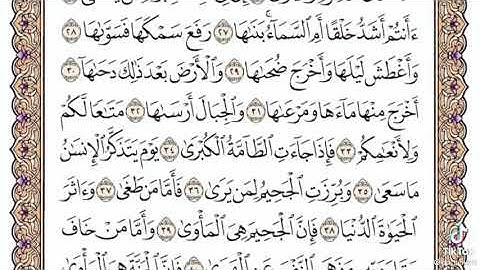 ءَأَنتُمْ أَشَدُّ خَلْقًا أَمِ ٱلسَّمَآءُ ۚ بَنَىٰهَا ٢٧ رَفَعَ سَمْكَهَا فَسَوَّىٰهَا ٢٨
وَأَغْطَشَ لَيْلَهَا وَأَخْرَجَ ضُحَىٰهَا ٢٩ وَٱلْأَرْضَ بَعْدَ ذَٰلِكَ دَحَىٰهَآ ٣٠
أَخْرَجَ مِنْهَا مَآءَهَا وَمَرْعَىٰهَا ٣١ وَٱلْجِبَالَ أَرْسَىٰهَا ٣٢ مَتَٰعًا لَّكُمْ
وَلِأَنْعَٰمِكُمْ ٣٣ فَإِذَا جَآءَتِ ٱلطَّآمَّةُ ٱلْكُبْرَىٰ ٣٤ يَوْمَ يَتَذَكَّرُ ٱلْإِنسَٰنُ
مَا سَعَىٰ ٣٥ وَبُرِّزَتِ ٱلْجَحِيمُ لِمَن يَرَىٰ ٣٦ فَأَمَّا مَن طَغَىٰ ٣٧ وَءَاثَرَ
ٱلْحَيَوٰةَ ٱلدُّنْيَا ٣٨ فَإِنَّ ٱلْجَحِيمَ هِىَ ٱلْمَأْوَىٰ ٣٩ وَأَمَّا مَنْ خَافَ